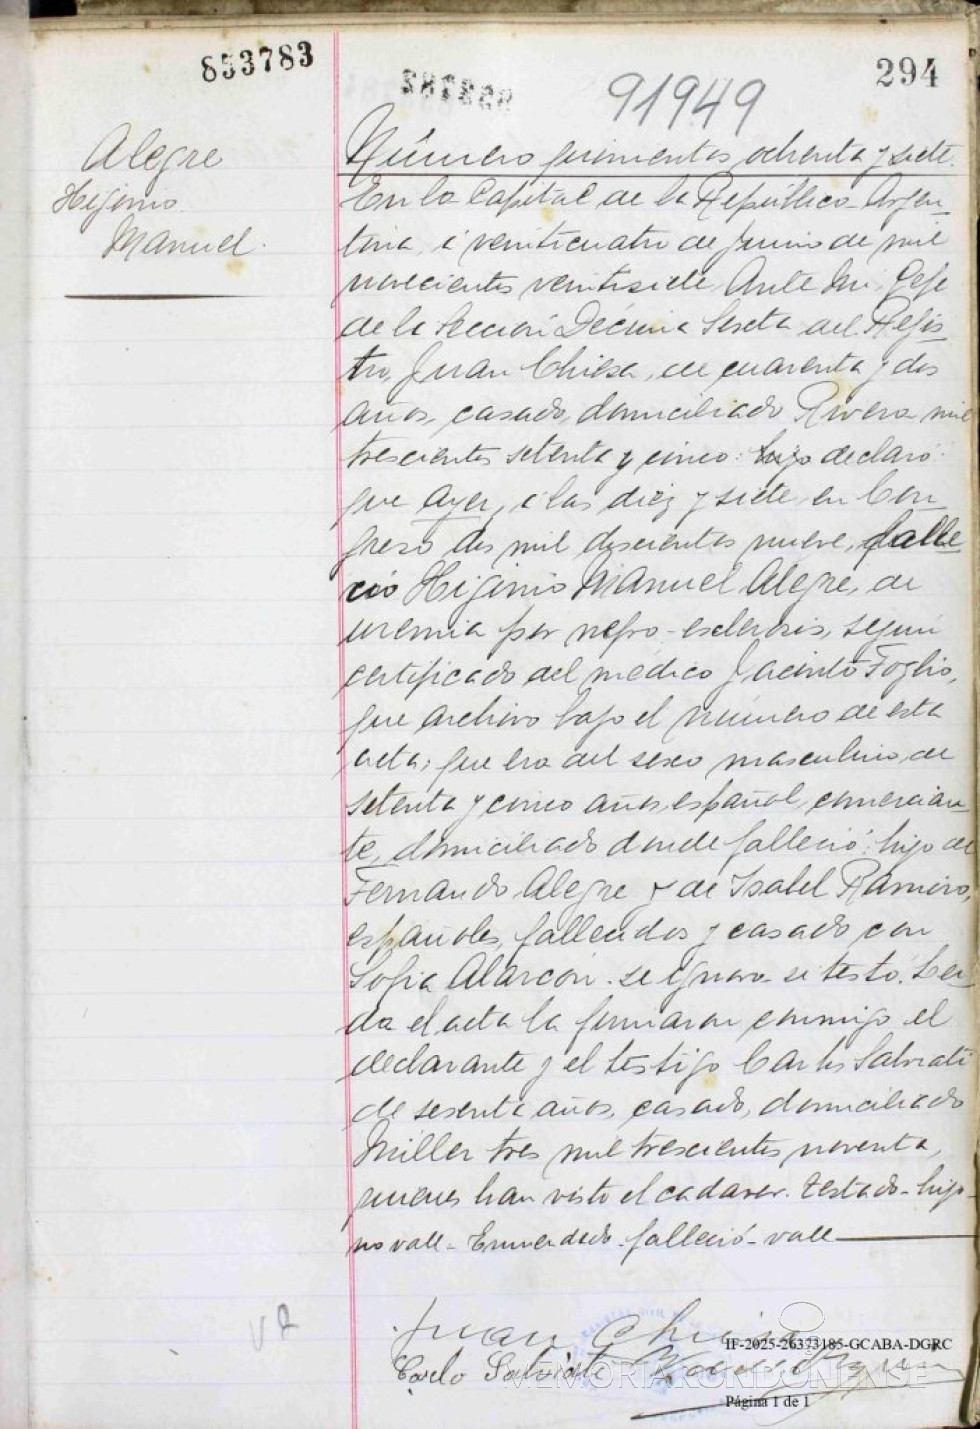 853783
294
91949
Alegre
Higinio
Manuel.
Número quinientos ochenta y siete.
En la Capital de la República Argen-
tina, á veinticuatro de Junio de mil
novecientos veintisiete, Ante mi, Gefe
de la Sección Décima Sexta del Regis-
tro, Juan Chiesa, de cuarenta y dos
años, casado, domiciliado Rivera mil
trescientos setenta y cinco: hijo declaró:
que ayer, á las diez y siete en Con-
greso dos mil doscientos nueve, falle-
ció Higinio Manuel Alegre, de
uremia por nefro-esclerosis, según
certificado del médico Jacinto Foglio,
que archivo bajo el número de esta
acta; que era del sexo masculino, de
setenta y cinco años, español, comercian-
te, domiciliado donde falleció: hijo de
Fernando Alegre y de Isabel Ramiro,
españoles, fallecidos y casado con
Sofia Alarcón. se ignora si testó. Lei-
da el acta la firmaron conmigo el
declarante y el testigo Carlos Salviati
de sesenta años, casado, domiciliado
Miller tres mil trescientos noventa,
quienes han visto el cadaver. Testado-hijo-
no vale-Enmendado-falleció-vale
Juan Chiesa
Carlo Salviati
IF-2025-26373185-GCABA-DGRC
MEMORIARONDONENSE
Página 1 de 1